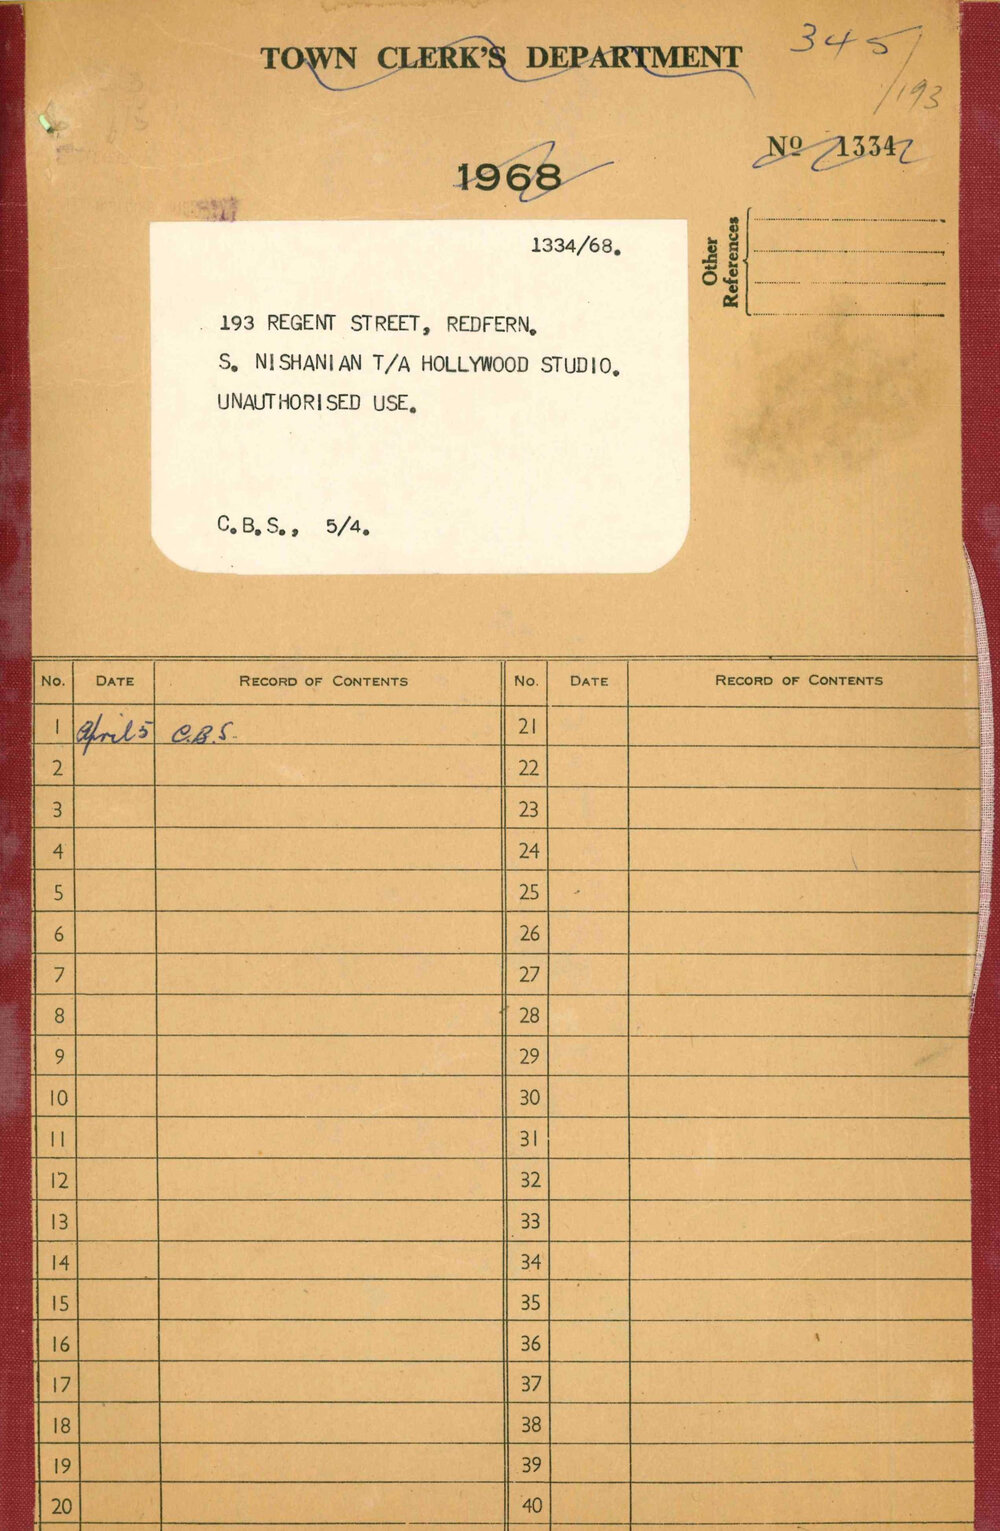 TOWN CLERK'S DEPARTMENT
345/193
No 1334
1968
Other References
1334/68.
193 REGENT STREET, REDFERN.
S. NISHANIAN T/A HOLLYWOOD STUDIO.
UNAUTHORISED USE.
C.B.S., 5/4.
No. DATE RECORD OF CONTENTS No. DATE RECORD OF CONTENTS
1 April 5 C.B.S. 21
2 22
3 23
4 24
5 25
6 26
7 27
8 28
9 29
10 30
11 31
12 32
13 33
14 34
15 35
16 36
17 37
18 38
19 39
20 40